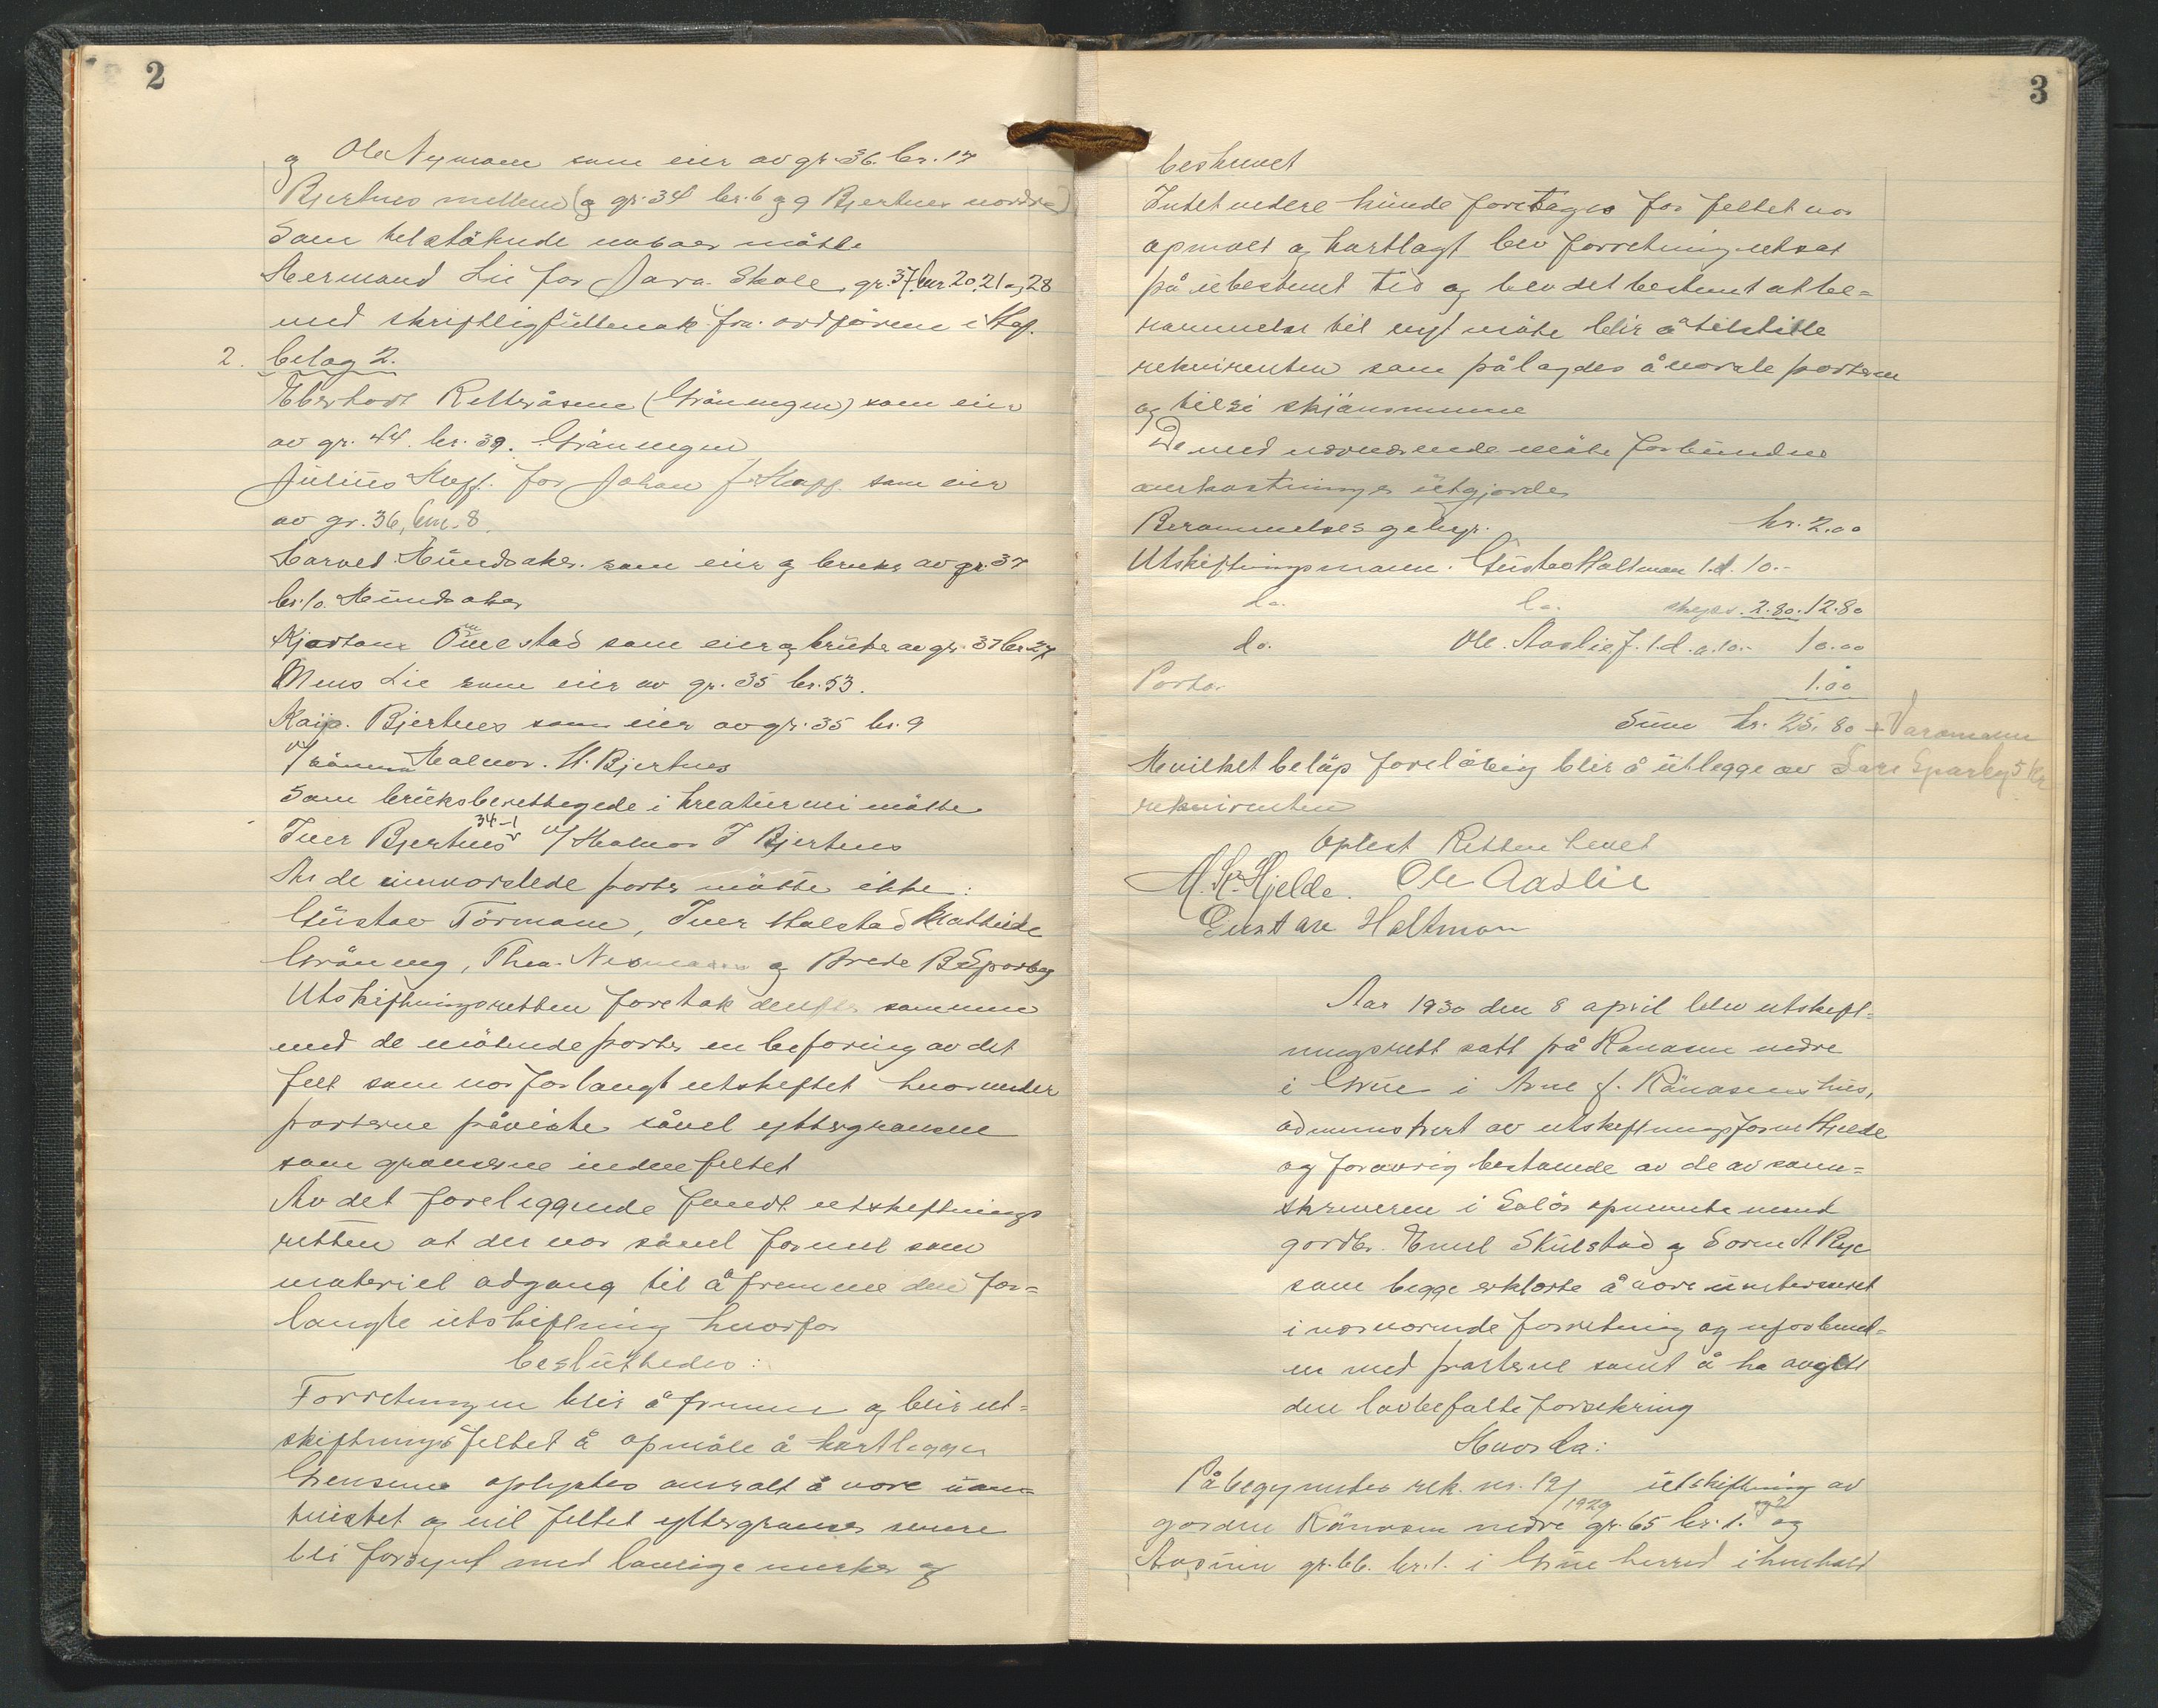 2
og Ole Nymoen som eier av gr. 36. br. 17
Bjertnes mellem (og gr. 34 br. 6 og 9 Bjertnes nordre)
Som tilstötende naboer mötte
Hermand Lie for Jara Skole, gr. 37 bnr. 20, 21 og 28
med skriftlig fullmakt fra ordföreren i Hof.
2. bilag 2.
Eberhart Retteråsen (Grånengen) som eier
av gr. 44. br. 39. Grånengen
Julius Kopp. for Johan J. Kopp. som eier
av gr. 36, bnr. 8.
Harvel Mundsaker. som eier og bruker av gr. 37
br. 10. Mundsaker
Kjartan Ömestad som eier og bruker av gr. 37 br 27
Mens Lie som eier av gr. 35 br. 53.
Kaija Bjertnes som eier av gr. 35 br. 9
v/ sönnen Halvor. H. Bjertnes
Som bruksberettigede i kreaturvei mötte
Iver Bjertnes 34-1 v/ Halvor I Bjertnes
Av de innvarslede parter mötte ikke:
Gustav Törmoen, Iver Halstad Mathilde
Gråneng, Thea og Brede B Sparby
Utskiftningsretten foretok sammen
med de mötende parter en befaring av det
felt som var forlangt utskiftet hvorunder
parterne påviste såvel yttergransene
som granserne inden feltet
Av det foreliggende fandt utskiftnings
retten at der var såvel formel som
materiel adgang til å fremme den for-
langte utskiftning hvorfor
besluttedes:
Forretningen blir å fremme og blir ut-
skiftningsfeltet å opmåle å kartlegge
Grensene oplystes overalt å vore uom-
tvistet og vil feltet yttergranser senere
bli forsynt med lovlige merker og
3
beskrevet
Intet videre kunde foretages for feltet var
opmålt og kartlagt blev forretning utsat
på ubestemt tid og blev det bestemt at be-
rammelse til nyt möte blir å tilstille
rekvirenten som pålagdes å varsle parterne
og tilsi skjönsmenne
De med nærværende möte forbundne
omkostninger utgjorde
Berammelsesgebyr. kr. 2.00
Utskiftningsmann. Gustav Holtman 1.d. 10.-
do. do. skyss. 2.80. 12.80
do. Ole Aaslie f. 1.d. a. 10.- 10.00
Porto. 1.00
Sum kr. 25.80 + Varamann
Hvilket belöp forelöbig blir å utlegge av Lars Sparby 5 kr
rekvirenten
Oplest Retten hevet
M. Kr. Hjelde. Ole Aaslie
Gustav Holtman
Aar 1930 den 8 april blev utskift-
ningsrett satt på Rånåsen nedre
i Grue i Arne J. Rånåsens hus,
administrert av utskiftningsform Hjelde
og foravrig bestaaende av de av soren-
skriveren i Solör opnevnte mend
gardbr. Emil Skulstad og Soren A Rye
som begge erklærte å være uinteressert
i nærværende forretning og uforbund-
en med parterne samt å ha avgitt
den lovbefalte forsikring
Hvorda:
Påbegyntes rek. nr. 19/1929 utskiftning av
garden Rånåsen nedre gr. 65 br. 1. og 2 og
gr. 66. br. 1. i Grue herred i henhold